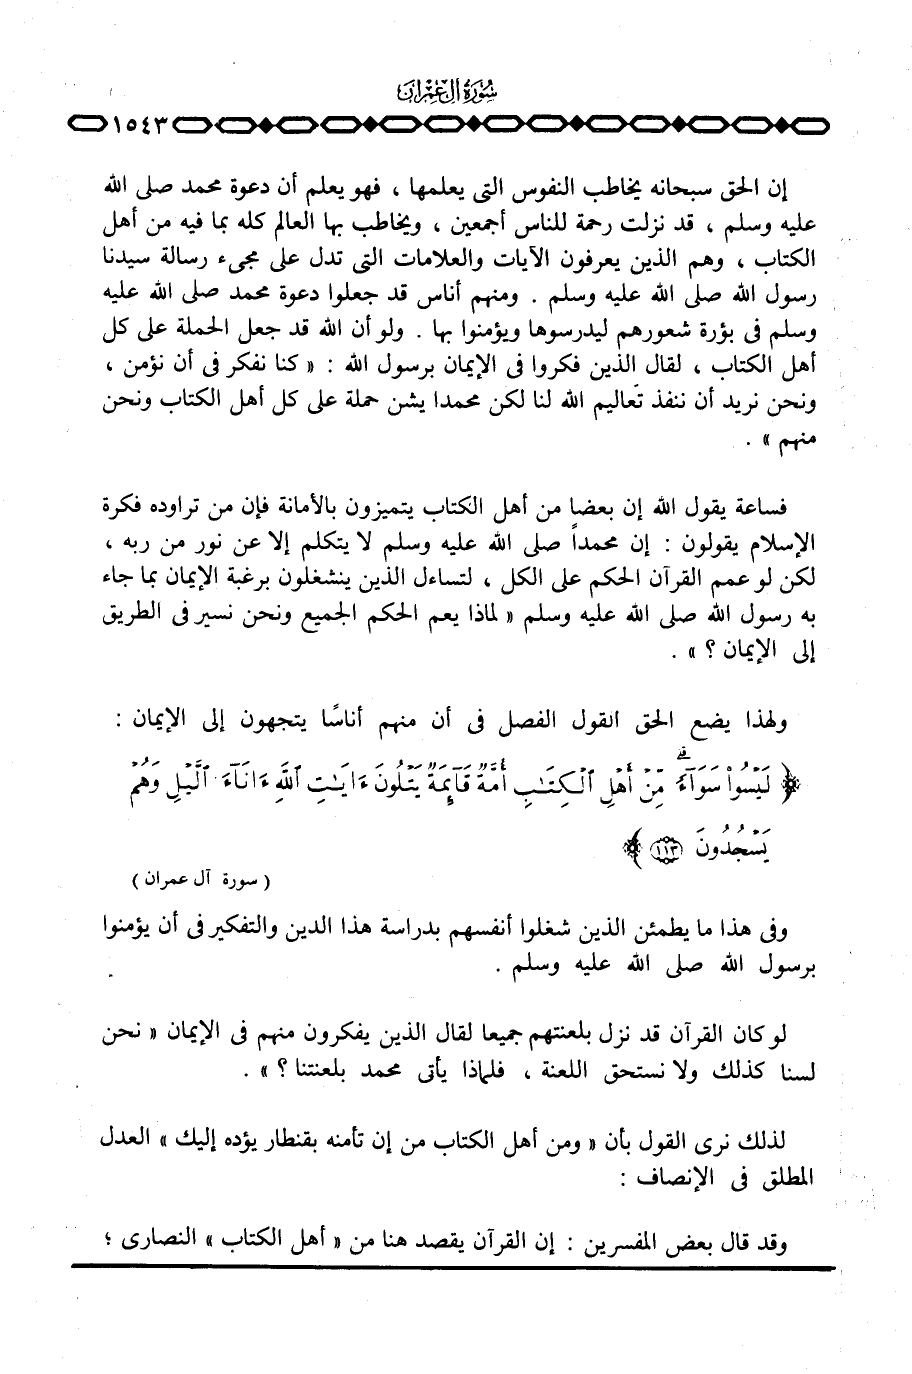 سُورَةُ آلِ عِمْرَانَ
١٥٤٣
إن الحق سبحانه يخاطب النفوس التى يعلمها ، فهو يعلم أن دعوة محمد صلى الله
عليه وسلم ، قد نزلت رحمة للناس أجمعين ، ويخاطب بها العالم كله بما فيه من أهل
الكتاب ، وهم الذين يعرفون الآيات والعلامات التى تدل على مجىء رسالة سيدنا
رسول الله صلى الله عليه وسلم . ومنهم أناس قد جعلوا دعوة محمد صلى الله عليه
وسلم فى بؤرة شعورهم ليدرسوها ويؤمنوا بها . ولو أن الله قد جعل الحملة على كل
أهل الكتاب ، لقال الذين فكروا فى الإيمان برسول الله : « كنا نفكر فى أن نؤمن ،
ونحن نريد أن ننفذ تعاليم الله لنا لكن محمدا يشن حملة على كل أهل الكتاب ونحن
منهم » .
فساعة يقول الله إن بعضا من أهل الكتاب يتميزون بالأمانة فإن من تراوده فكرة
الإسلام يقولون : إن محمداً صلى الله عليه وسلم لا يتكلم إلا عن نور من ربه ،
لكن لو عمم القرآن الحكم على الكل ، لتساءل الذين ينشغلون برغبة الإيمان بما جاء
به رسول الله صلى الله عليه وسلم « لماذا يعم الحكم الجميع ونحن نسير فى الطريق
إلى الإيمان ؟ » .
ولهذا يضع الحق القول الفصل فى أن منهم أناسًا يتجهون إلى الإيمان :
﴿ لَيْسُوا۟ سَوَآءً ۗ مِّنْ أَهْلِ ٱلْكِتَـٰبِ أُمَّةٌ قَآئِمَةٌ يَتْلُونَ ءَايَـٰتِ ٱللَّهِ ءَانَآءَ ٱلَّيْلِ وَهُمْ
يَسْجُدُونَ ١١٣ ﴾
( سورة آل عمران )
وفى هذا ما يطمئن الذين شغلوا أنفسهم بدراسة هذا الدين والتفكير فى أن يؤمنوا
برسول الله صلى الله عليه وسلم .
لو كان القرآن قد نزل بلعنتهم جميعا لقال الذين يفكرون منهم فى الإيمان « نحن
لسنا كذلك ولا نستحق اللعنة ، فلماذا يأتى محمد بلعنتنا ؟ » .
لذلك نرى القول بأن « ومن أهل الكتاب من إن تأمنه بقنطار يؤده إليك » العدل
المطلق فى الإنصاف :
وقد قال بعض المفسرين : إن القرآن يقصد هنا من « أهل الكتاب » النصارى ؛